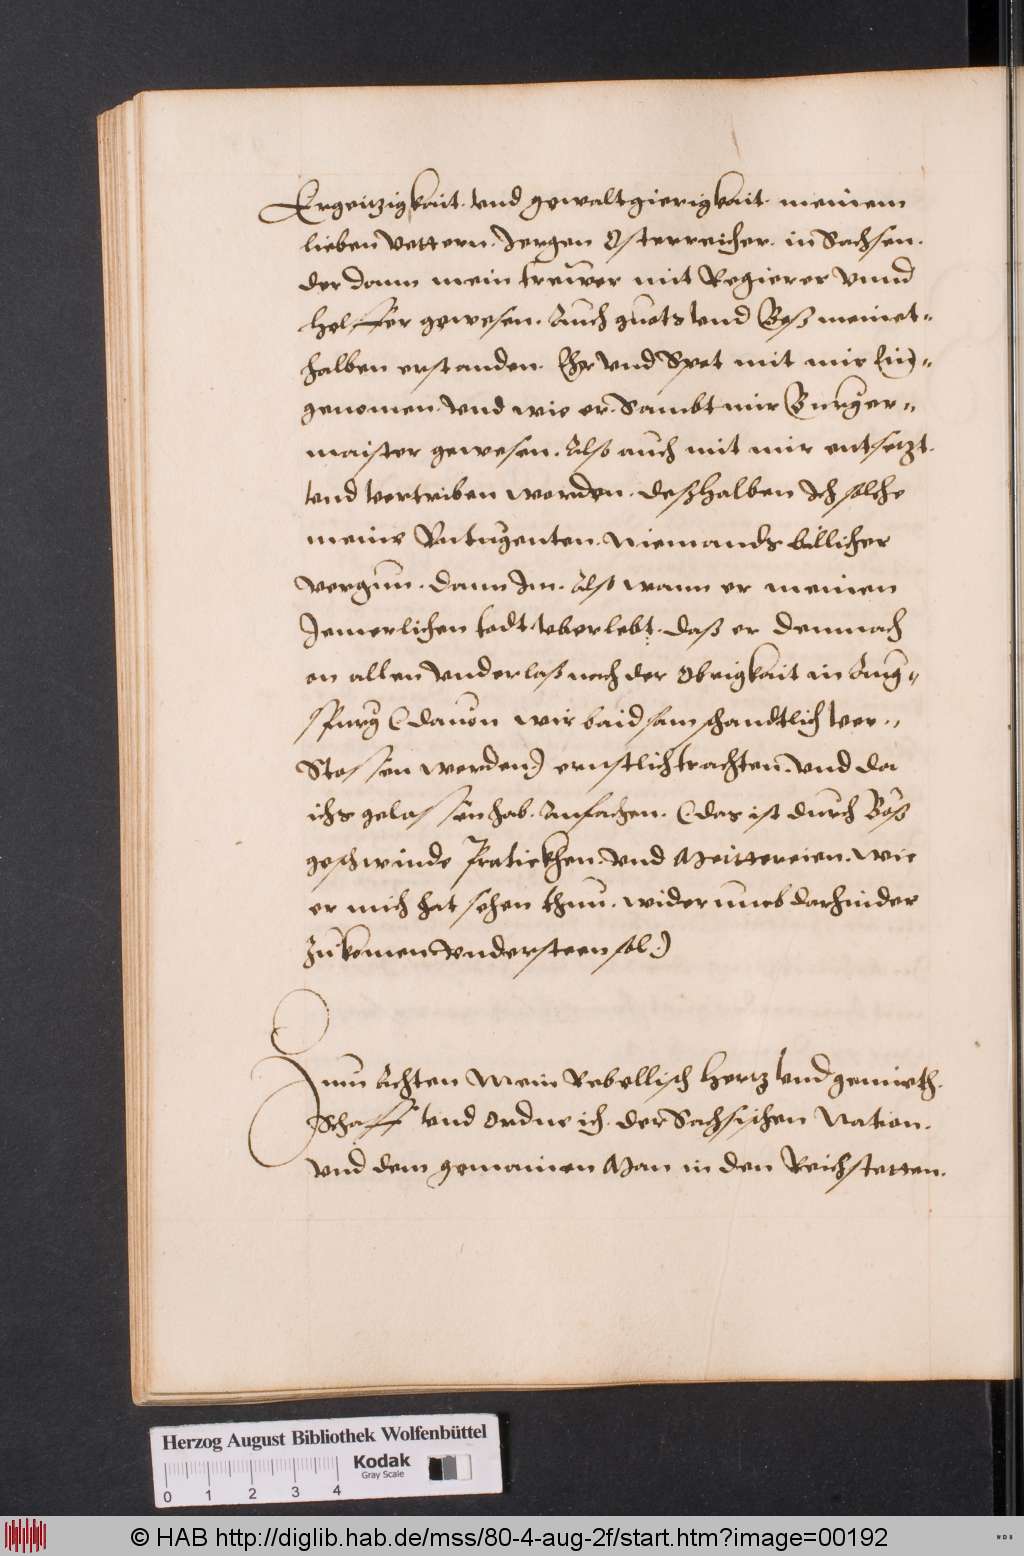 Ergeitzigkait. vnd gewaltgierigkait. meinem
lieben Vettern. Jergen Osterreicher. in Sachsen.
der dann mein treŵer mit Regierer Vnnd
Helffer gewesen. Auch guets vnd Beß meinet-
halben erstanden. Ehr vnd Spot mit mir ein-
genomen. Vnd wie er. Sambt mir Burger-
maister gewesen. Also auch mit mir entsetzt.
vnd vertriben worden. deßhalben Ich solche
meine Vntugenten. Niemands billicher
vergunn. dann Im. Also wann er meinen
Jemerlichen todt. vberlebt. daß er demnach
on allen Vnderlaß nach der Obrigkait in Aug-
spurg (dauon wir baid sam schandtlich ver-
Stossen werden) ernstlich trachten. Vnd da
ichs gelassen hab. Anfachen. (das ist durch Böß
geschwinde Pratickhen. Vnd Meittereien. wie
er mich hat sehen thun. wider umb darhinder
Zu komen Vndersteen sol.)
Zum Achten Mein Rebellisch Hertz vnd gemieth.
Schaff vnd Ordne ich. der Sachsischen Nation.
Vnd dem gemainen Man in den Reichstetten.
Herzog August Bibliothek Wolfenbüttel
Kodak
Gray Scale
0 1 2 3 4
© HAB http://diglib.hab.de/mss/80-4-aug-2f/start.htm?image=00192